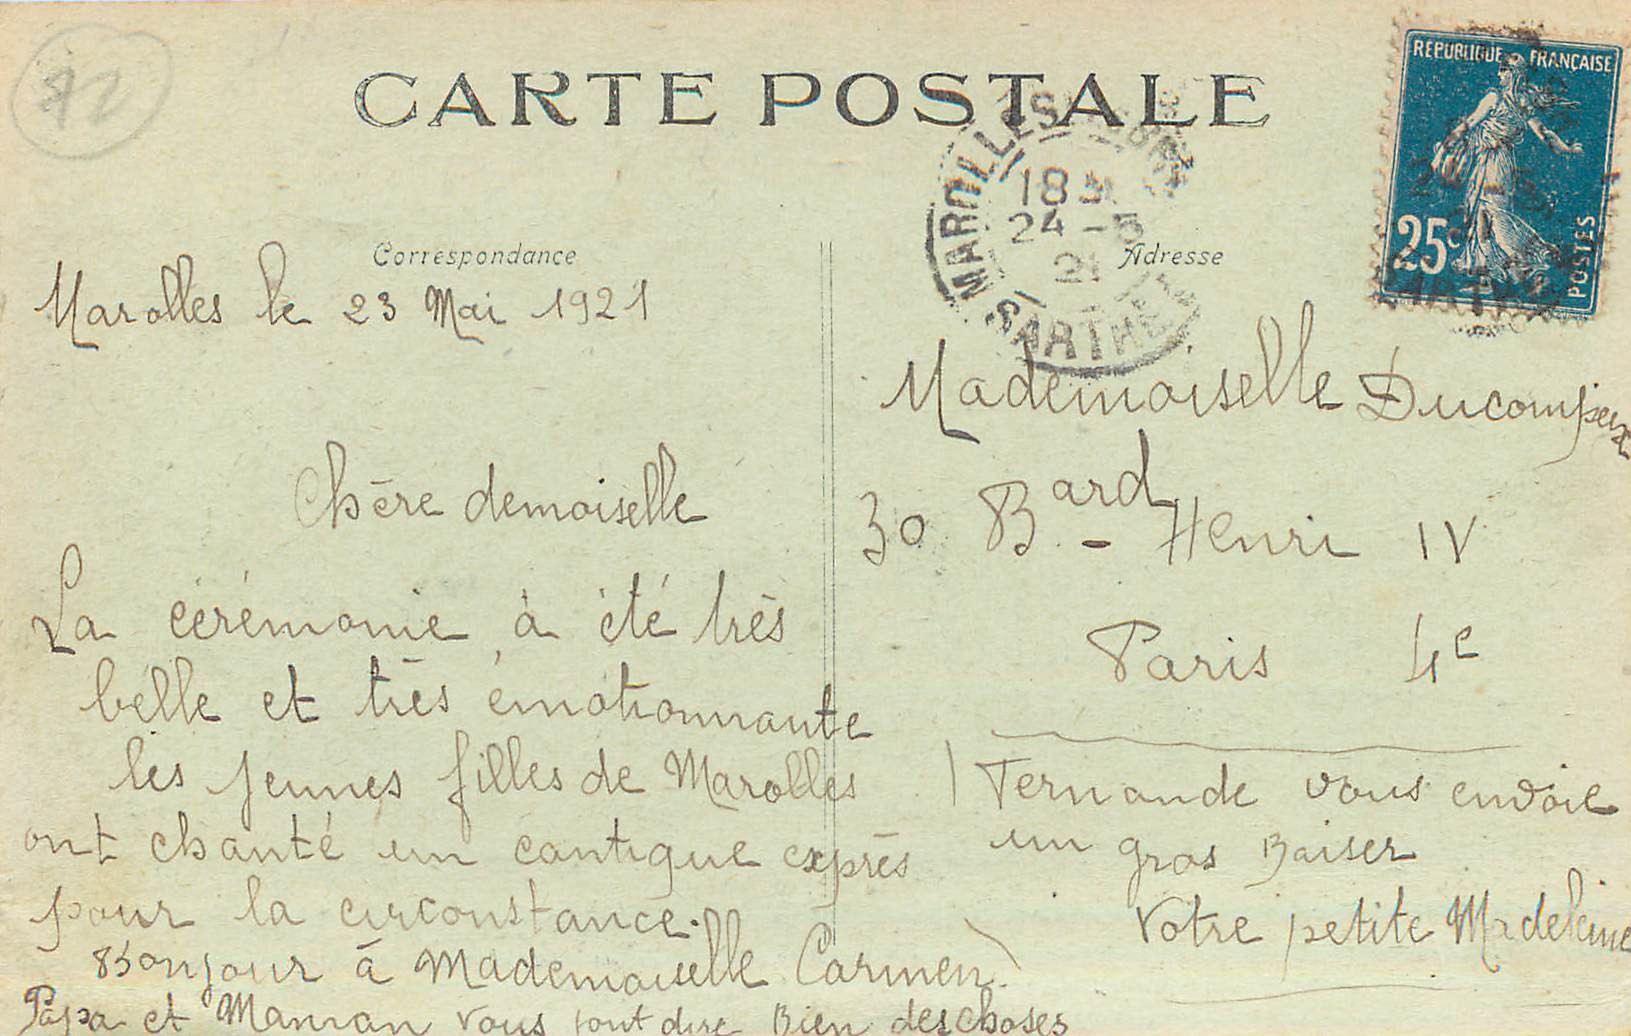 72
CARTE POSTALE
REPUBLIQUE FRANÇAISE
25c
POSTES
MAROLLES
18 30
24 -5
21
SARTHE
Correspondance
Marolles le 23 Mai 1921
Chère demoiselle
La cérémonie à été très
belle et très émotionnante
les jeunes filles de Marolles
ont chanté un cantique exprès
pour la circonstance.
Bonjour à Mademoiselle Carmen.
Papa et Maman vous font dire Bien des choses
Adresse
Mademoiselle Ducompeux
30 Bard - Henri IV
Paris 4e
Fernande vous envoie
un gros Baiser
Votre petite Madeleine